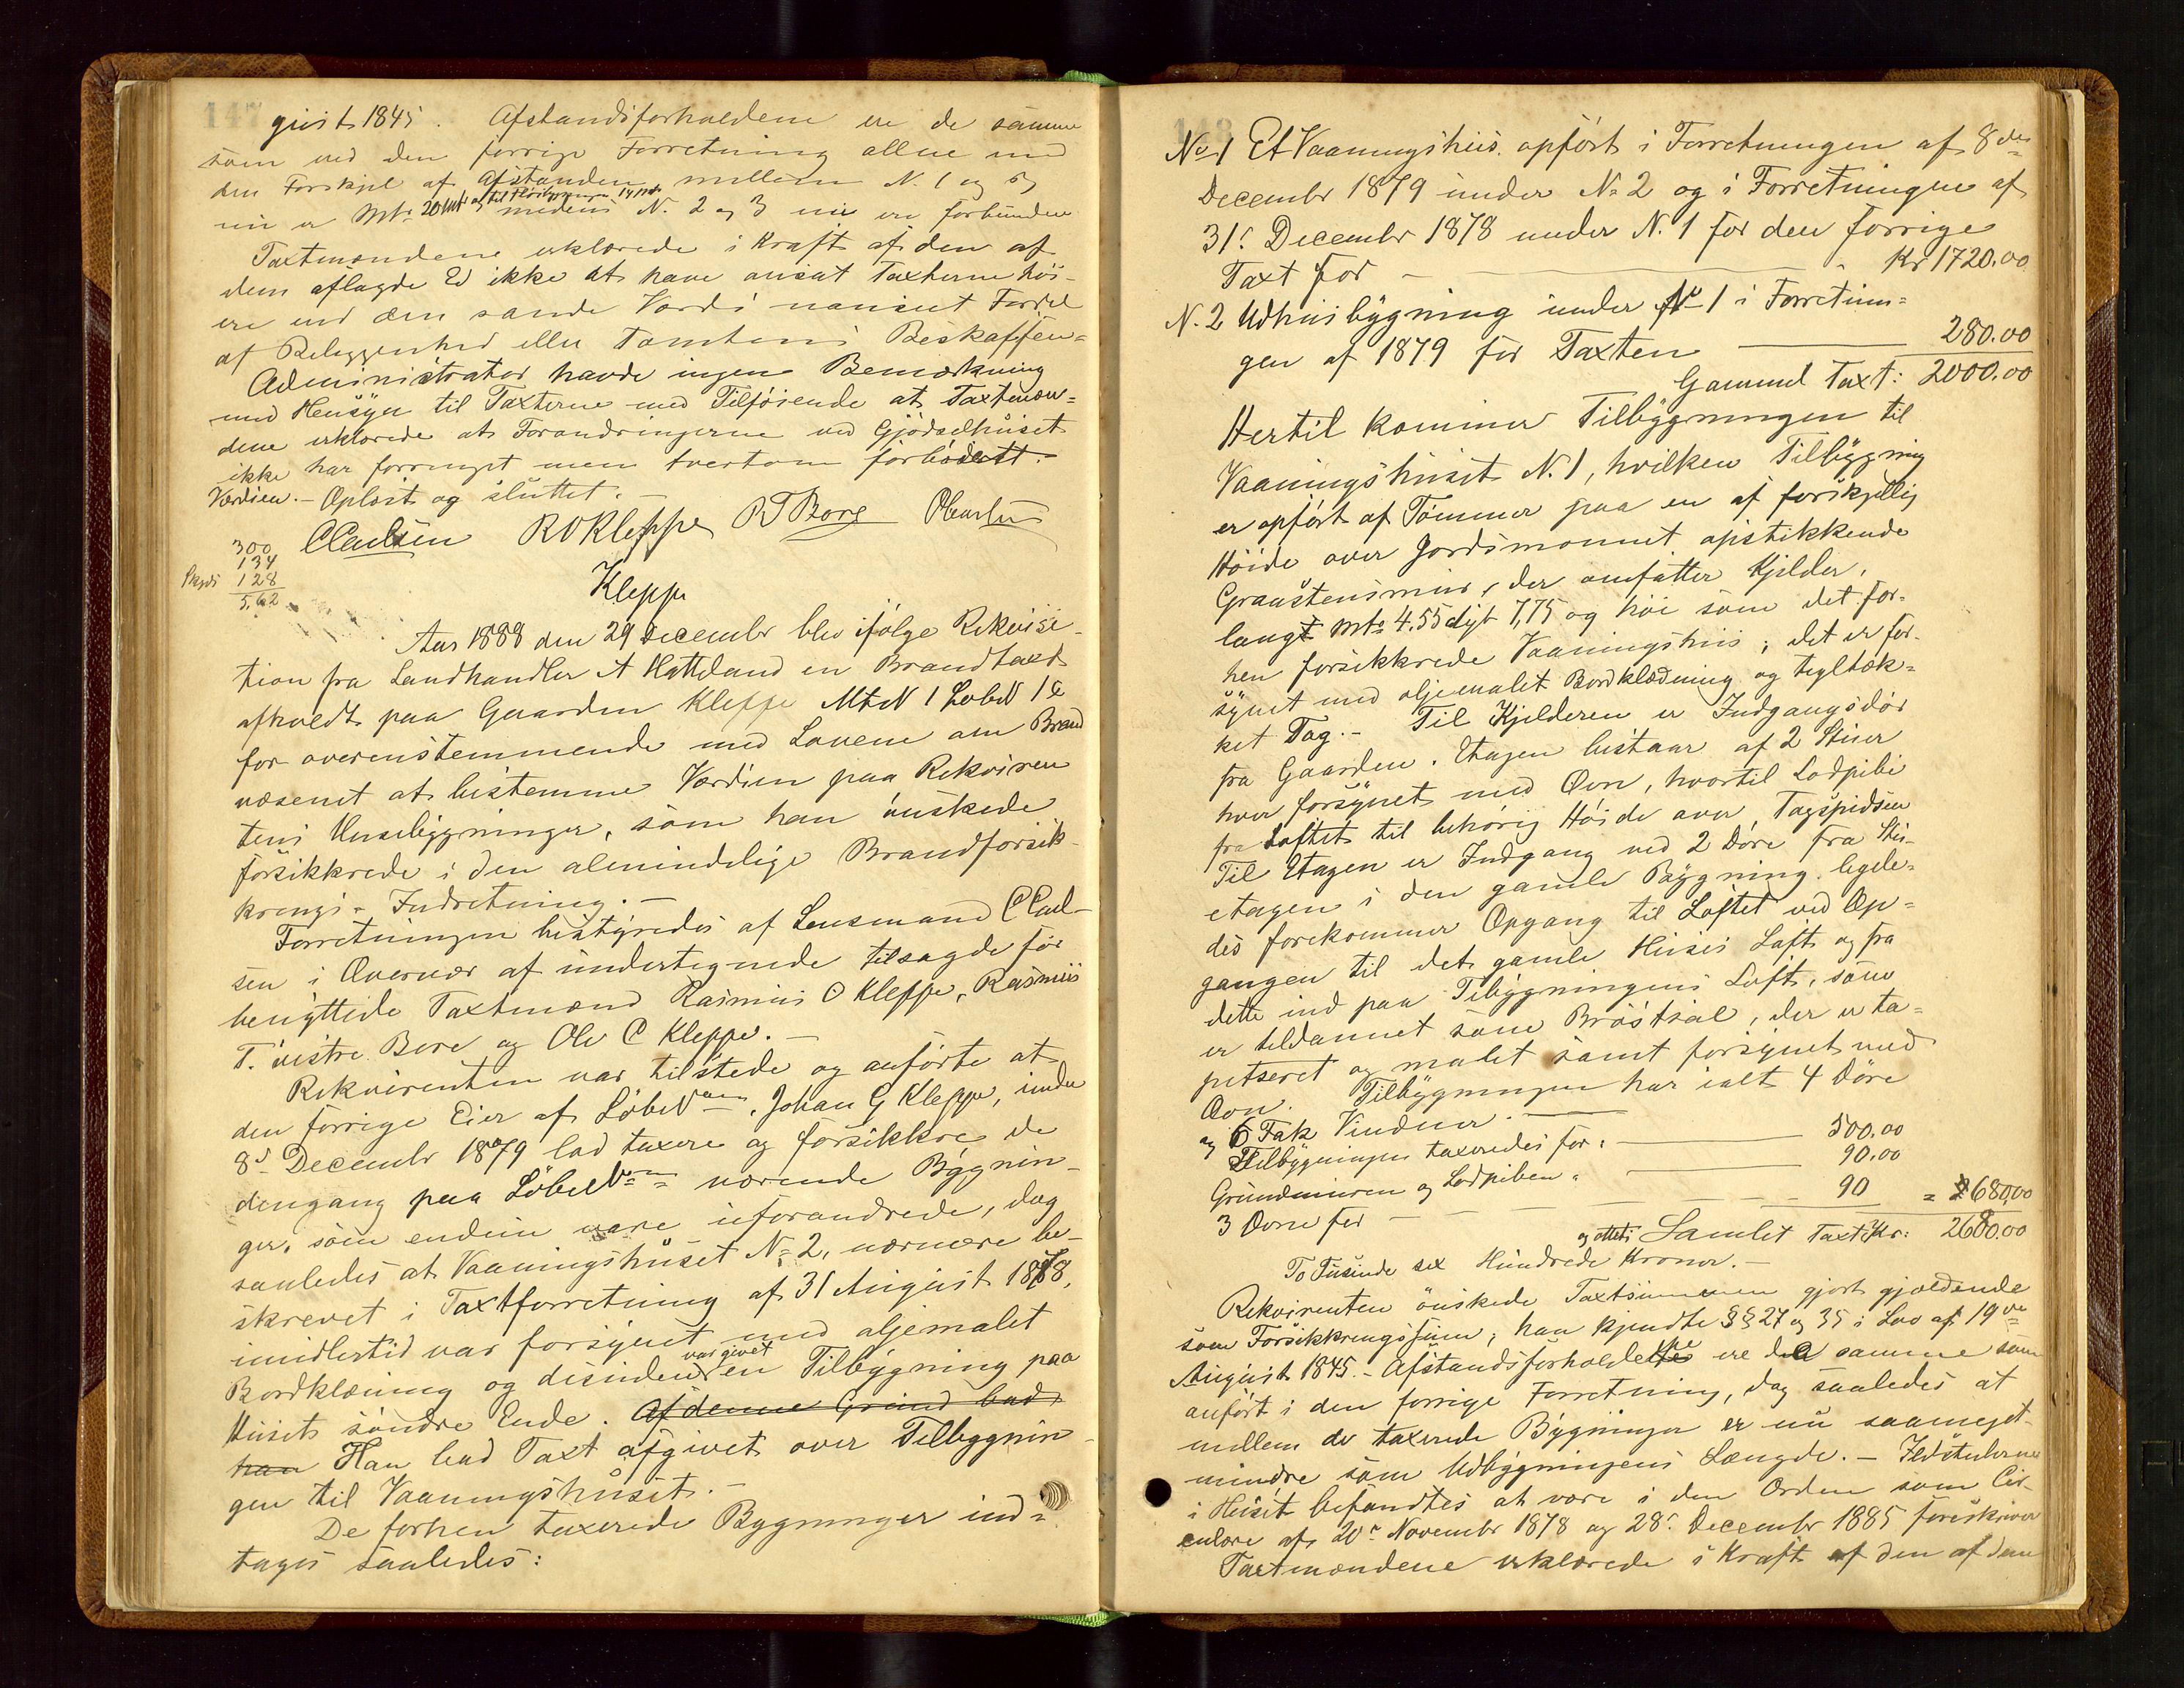 147
gust 1845. Afstandsforholdene ere de samme
som ved den forrige Forretning allene med
den Forskjel af Afstanden mellem N. 1 og
nu er Mtr 20 medens N. 2 og 3 nu ere forbundne
Taxtmændene erklærede i Kraft af den af
dem aflagde Ed ikke at have ansat Taxterne høi-
ere end den sande Værdi uanseet Fordel
af Beliggenhed eller Tomtens Beskaffen=
Administrator havde ingen Bemærkning
med Hensyn til Taxterne med Tilføiende at Taxtmæn=
dene erklærede at Forandringerne ved Gjødselhuset
ikke har forringet men tvertom forbedret
Værdien. - Oplæst og sluttet. -
CClaulsen ROKleppe RTBore
300
134
Skyds 128
5,62
Kleppe
Aar 1888 den 29 December blev ifølge Rekvisi-
tion fra Landhandler A Hatteland en Brandtaxt
afholdt paa Gaarden Kleppe MtN 1 LøbeN 1e
for overenstemmende med Lovene om Brand
væsenet at bestemme Værdien paa Rekviren
tens Huusebygninger, som han ønskede
forsikkrede i den alemindelige Brandforsik-
krings-Indretning. -
Forretningen bestyredes af Lensmand CClaul-
sen i Overvær af undertegnede tilsagde før
benyttede Taxtmænd Rasmus O Kleppe, Rasmus
T. østre Bore og Ole C Kleppe. -
Rekvirenten var tilstede og anførte at
den forrige Eier af LøbeN, Johan G Kleppe, under
8d December 1879 lod taxere og forsikkre de
dengang paa LøbeN værende Bygnin-
ger, som endnu vare uforandrede, dog
saaledes at Vaaningshuset No 2, nærmere be-
skrevet i Taxtforretning af 31 August 1878,
imidlertid var forsynet med oljemalet
Bordklæning og desuden var givet en Tilbygning paa
Husets søndre Ende. Af denne Grund bad
han Han bad Taxt afgivet over Tilbygnin
gen til Vaaningshuset. -
De forhen taxerede Bygninger ind=
tages saaledes:
148
No 1 Et Vaaningshuus opført i Forretningen af 8de
December 1879 under No 2 og i Forretningen af
31. December 1878 under N. 1 for den forrige
Taxt for - Kr 1720.00
N. 2 Udhuusbygning under No 1 i Forretnin=
gen af 1879 for Taxten 280.00
Gammel Taxt: 2000.00
Hertil kommer Tilbygningen til
Vaaningshuset N. 1, hvilken Tilbygning
er opført af Tømmer paa en af forskjellig
Høide over Jordsmonnet opstikkende
Graastensmur, der omfatter Kjelder,
langt Mtr 4.55 dyb 7,75 og høi som det for-
hen forsikkrede Vaaningshus; det er for-
synet med oljemalet Bordklædning og tegltæk=
ket Tag. - Til Kjelderen er Indgangsdør
fra Gaarden. Etagen bestaar af 2 Stuer
hver forsynet med Ovn, hvortil Lodpibe
fra Loftet til behørig Høide over Tagspidsen
Til Etagen er Indgang ved 2 Døre fra Stu-
etagen i den gamle Bygning. ligele=
des forekommer Opgang til Loftet ved Op=
gangen til det gamle Huses Loft og fra
dette ind paa Tilbygningens Loft, som
er tildannet som Brøstsal, der er ta=
petseret og malet samt forsynet med
Ovn. Tilbygningen har ialt 4 Døre
og 6 Fak Vinduer.
Tilbygningen taxeredes for: 500.00
Grundmuren og Lodpiben: 90.00
3 Ovne for 90 = 680,00
og otteti Samlet Taxt Kr: 2680.00
To Tusinde sex Hundrede Kroner. -
Rekvirenten ønskede Taxtsummen gjort gjældende
som Forsikkringssum; han kjendte §§ 27 og 35 i Lov af 19de
August 1845. - Afstandsforholdene ere de samme som
anført i den forrige Forretning, dog saaledes at
mellem de taxerede Bygninger er nu saameget
mindre som Udbygningens Længde. - Ildstederne
i Huset befandtes at være i den Orden som Cir-
culære af 20. November 1878 og 28. December 1885 foreskriver
Taxtmændene erklærede i Kraft af den af dem